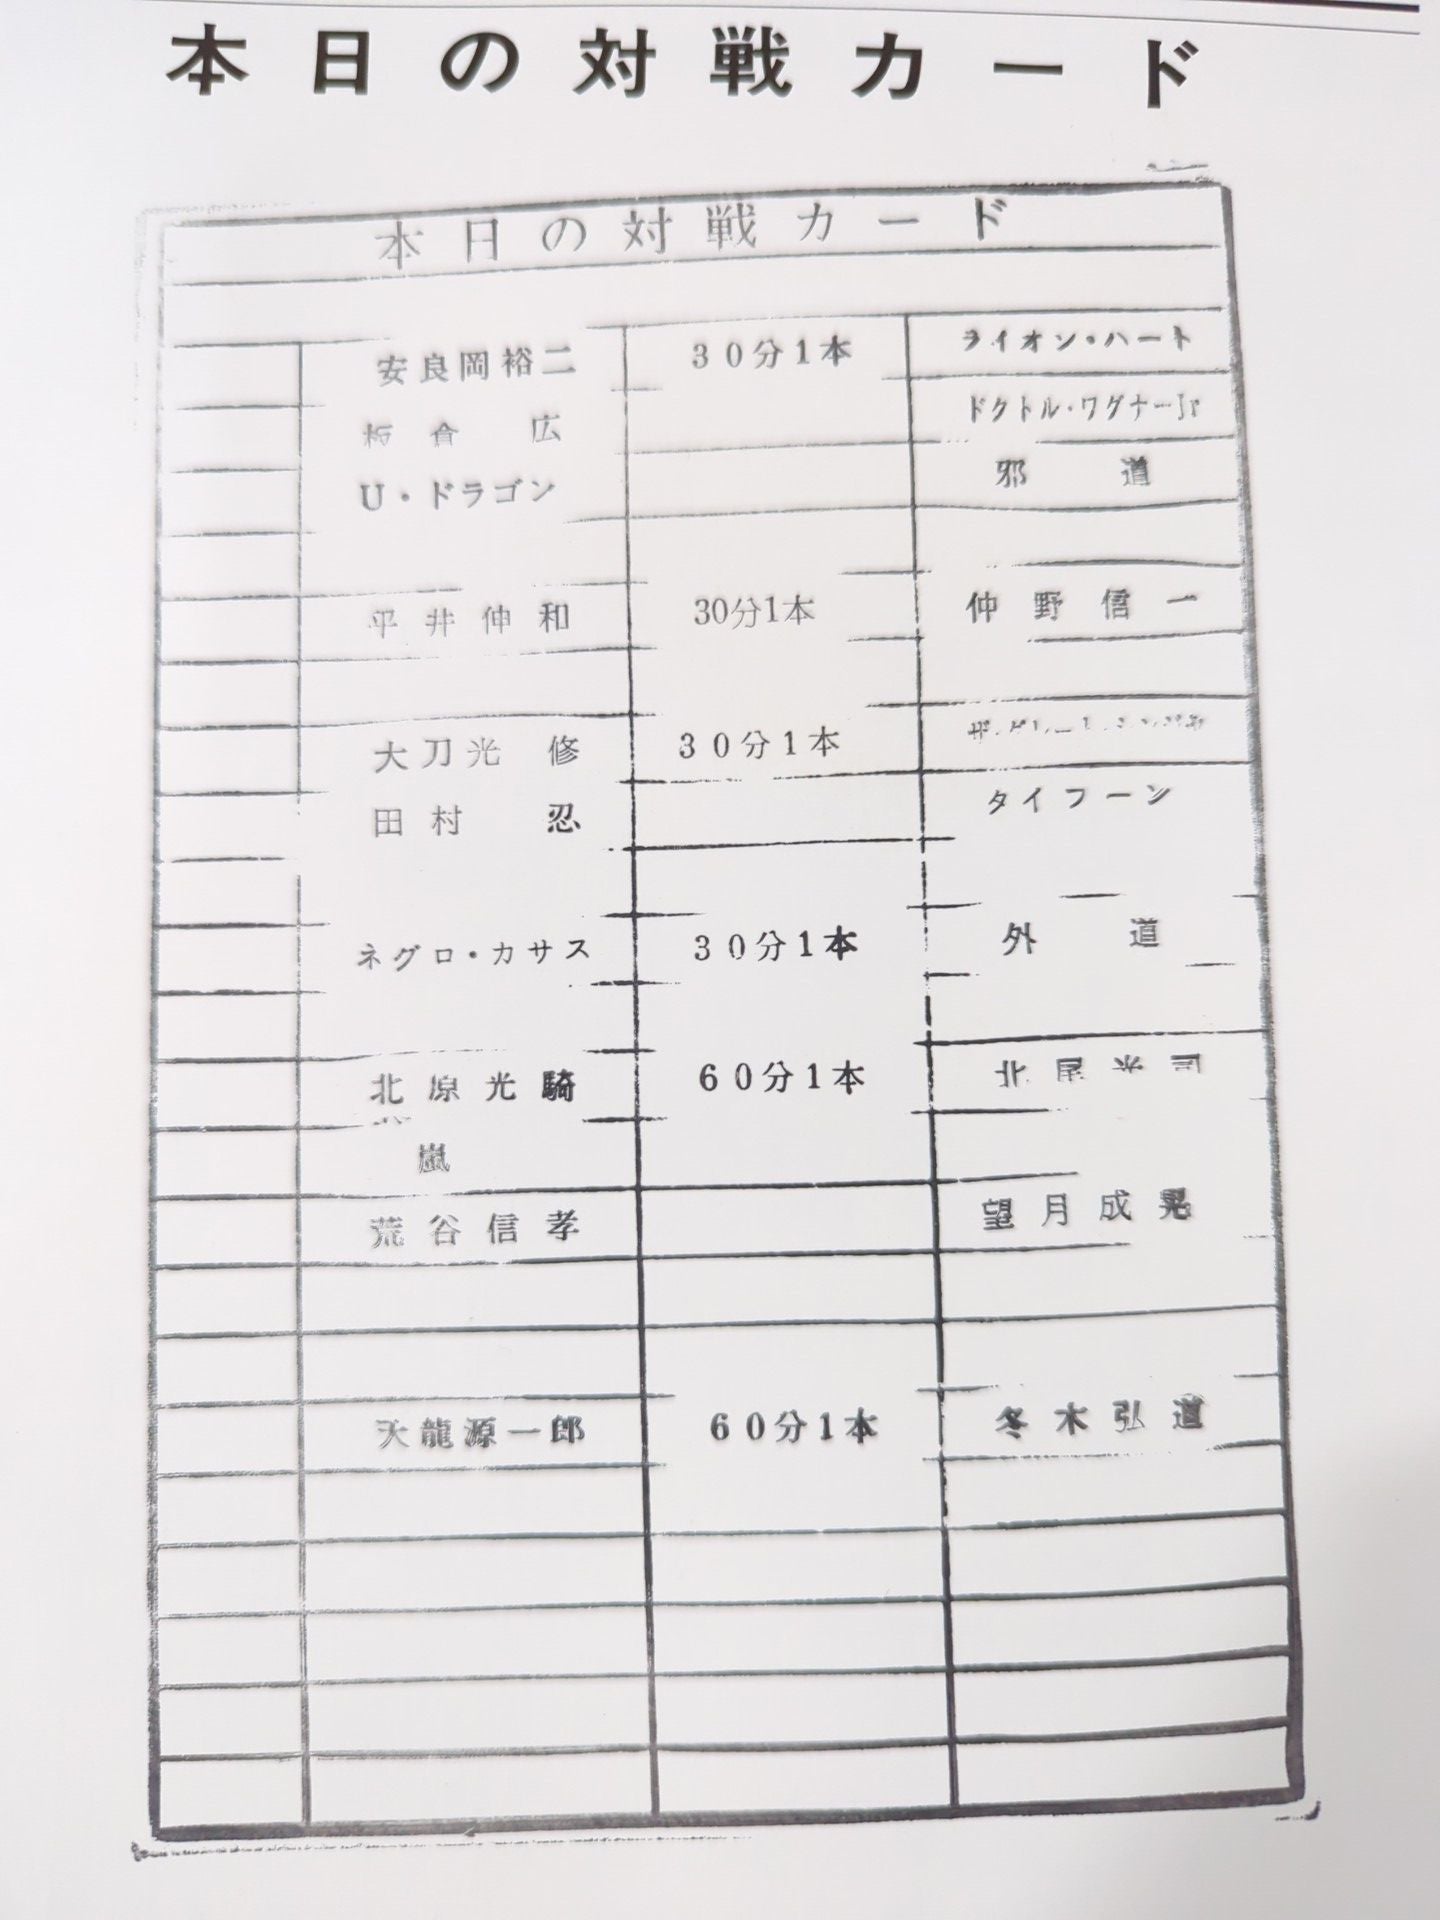 本日の対戦カード
本日の対戦カード
安良岡裕二 30分1本 ライオン・ハート
板倉 広 ドクトル・ワグナーJr
U・ドラゴン 邪道
平井伸和 30分1本 仲野信一
大刀光 修 30分1本
田村 忍 タイフーン
ネグロ・カサス 30分1本 外道
北原光騎 60分1本 北尾光司
嵐
荒谷信孝 望月成晃
天龍源一郎 60分1本 冬木弘道